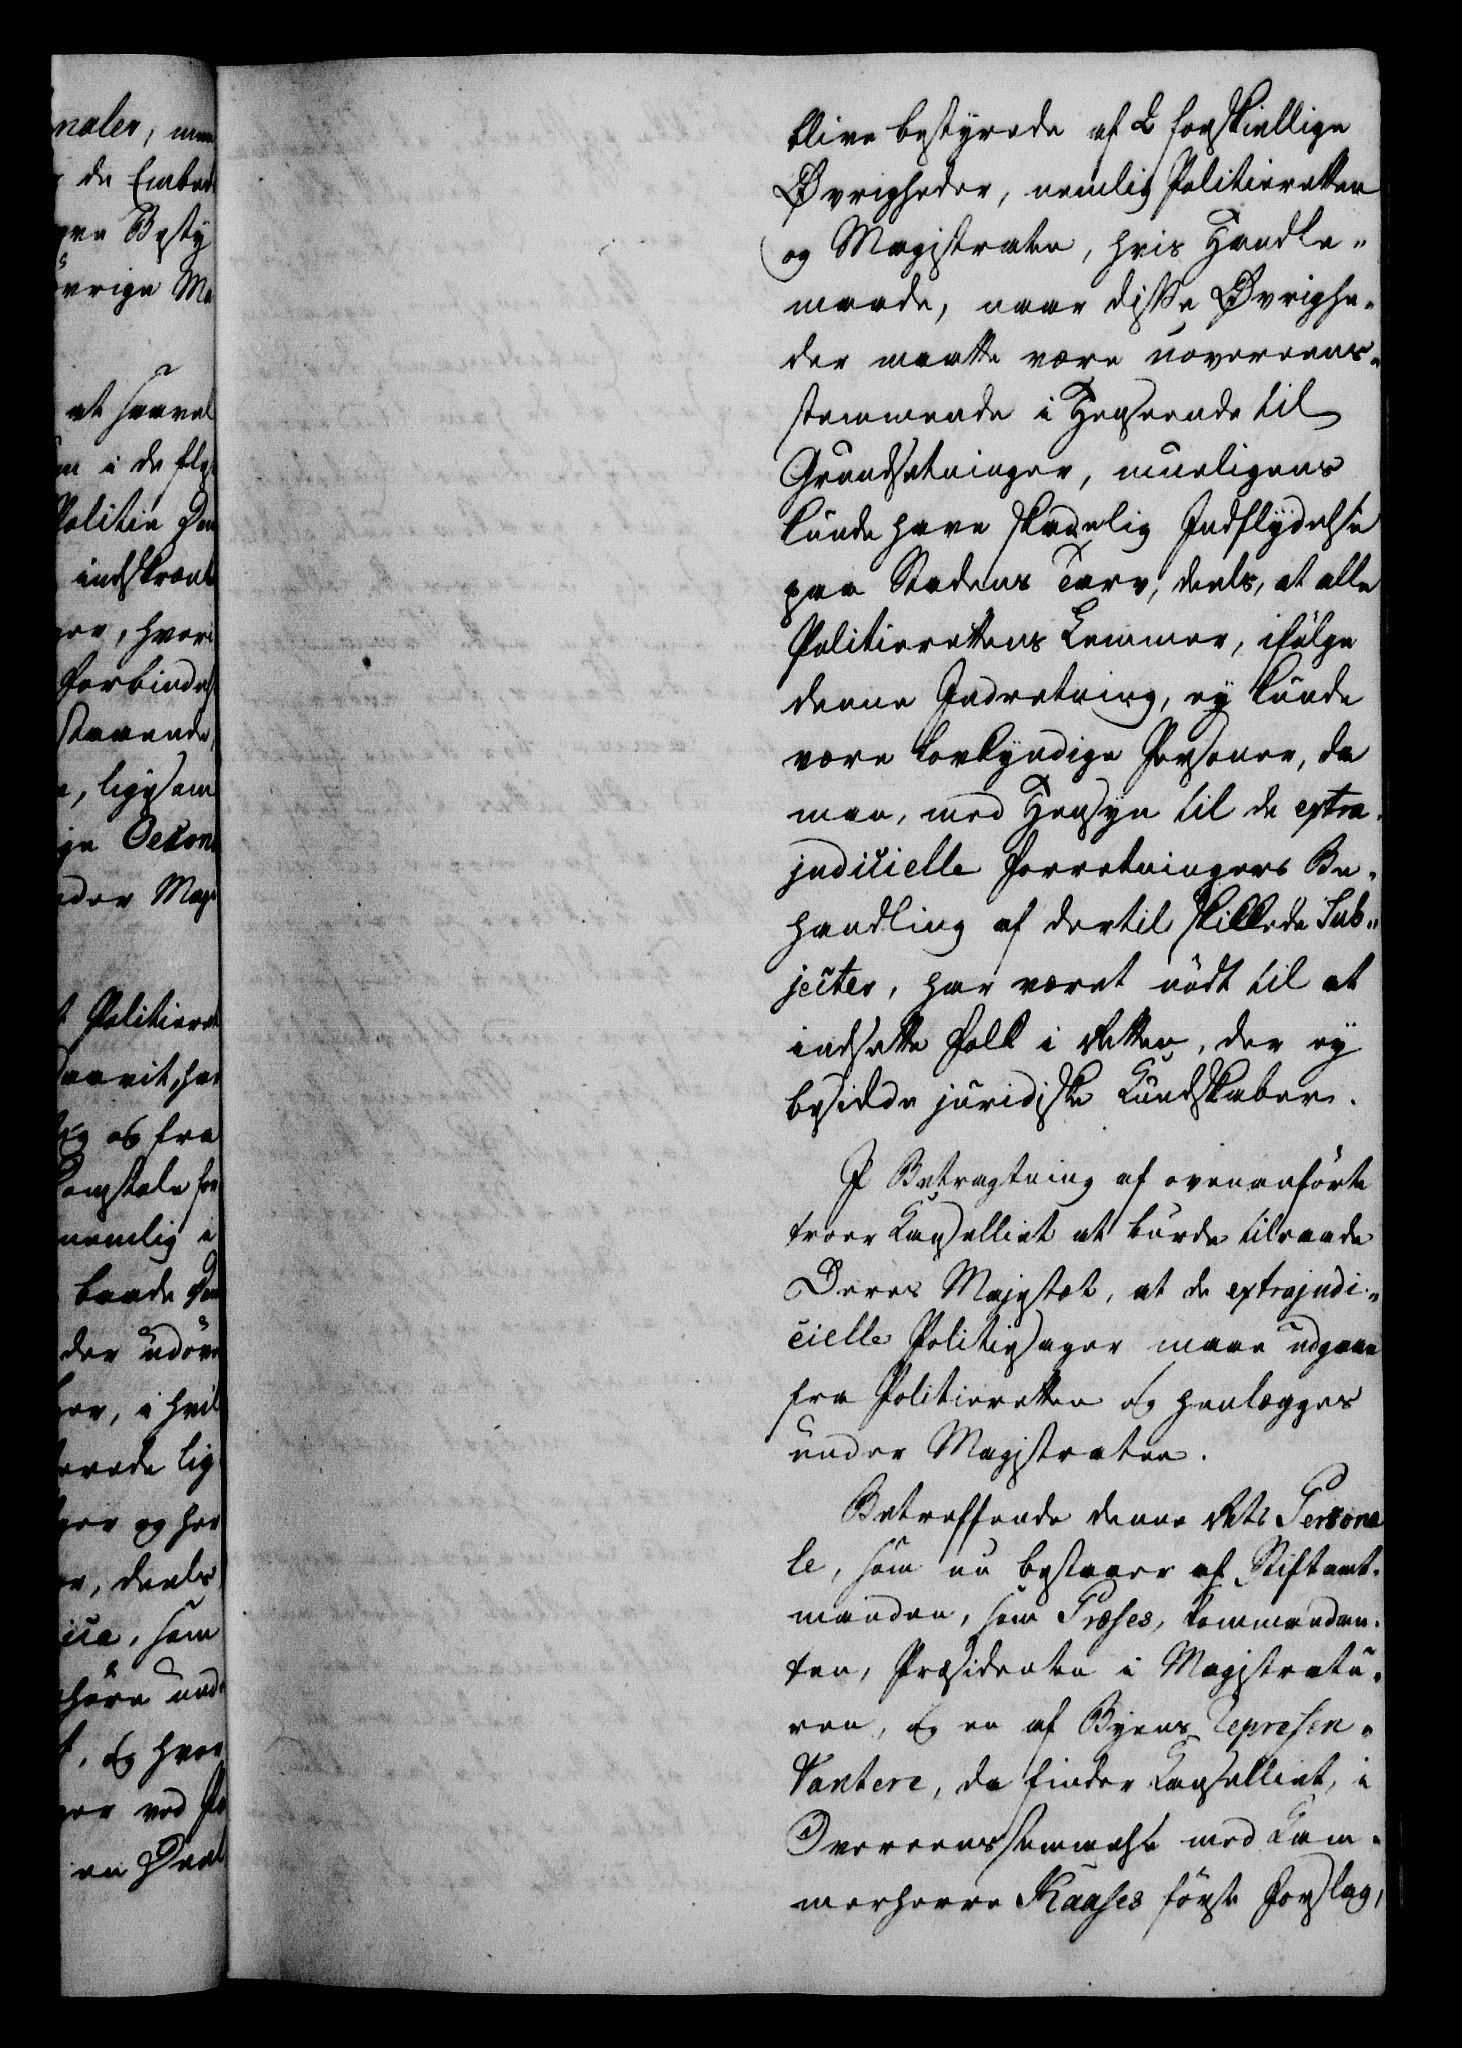 naler, men
de Embed
gen Besty
övrige Ma
at saavel
m i de fles
Politie Dom
indskrænk
ger, hvori
Forbindels
staaende,
e, ligesom
ge Oekono
nder Mag
t Politieret
havit, ha
og fra
Domstole for
nemlig i
baade Dom
der udöve
ger, i hvil
erede lig
ger og her
er, deels
ica, som
höre und
t, og hver
ger ved Po
en Deel
blive bestyrede af 2 forskiellige
Øvrigheder, nemlig Politieretten
og Magistraten, hvis Handle-
maade, naar disse Øvrighe-
der maatte være uovereens-
stemmende i Henseende til
Grundsætninger, mueligens
kunde have skadelig Indflydelse
paa Stadens Tarv, deels, at alle
Politierettens Lemmer, ifölge
denne Indretning, ey kunde
være lovkyndige Personer, da
man, med Hensyn til de extra-
judicielle Forretningers Be-
handling af dertil skikkede Sub-
jecter, har været nödt til at
indsætte Folk i Retten, der ey
besidde juridiske Kundskaber.
I Betragtning af ovenanförte
troer Cancelliet at burde tilraade
Deres Majestæt, at de extrajudi-
cielle Politiesager maae udgaae
fra Politieretten og henlægges
under Magistraten.
Betreffende denne Rets Persona
le, som nu bestaaer af Stiftamt-
manden, som Præses, Commendan-
ten, Præsidenten i Magistratu-
ren, og en af Byens Repræsen-
tantere, da finder Cancelliet, i
Overeensstemmelse med Kam-
merherre Kaases förste Forslag,